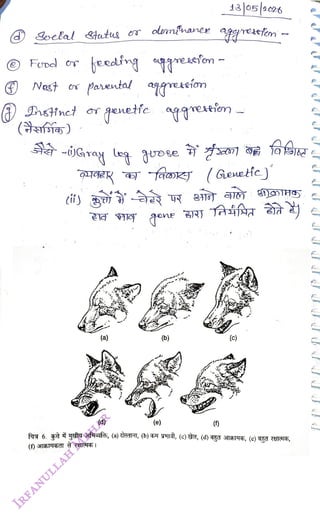 13/05/2026
(d) Social Status or dominance aggression -
(e) Food or feeding aggression -
(f) Nest or parental aggression
(g) Instinct or genetic aggression -
(नैसर्गिक)
जैसे -(i) Gray leg goose में विशिष्ट
व्यवहार का विकास (Genetic)
(ii) कुत्तों में - चेहरे पर आने वाले आक्रामक
हाव भाव gene द्वारा नियंत्रित होते हैं)
(a) (b) (c)
(d) (e) (f)
चित्र 6. कुत्ते में मुखीय अभिव्यक्ति, (a) दोस्ताना, (b) कम प्रभावी, (c) खेल, (d) बहुत आक्रामक, (e) बहुत रक्षात्मक,
(f) आक्रामकता से रक्षात्मक।
IRFANULLAH